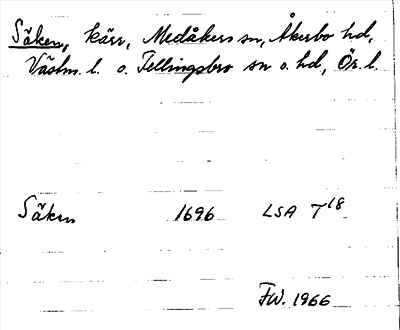 Säken, kärr, Medåkers sn, Åkerbo hd,
Västm. l. o. Fellingsbro sn o. hd, Ör. l.
Säken 1696 LSA T18
FW. 1966